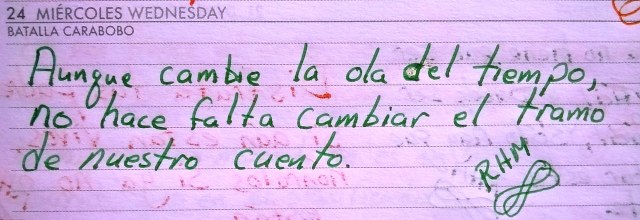 24 MIÉRCOLES WEDNESDAY
BATALLA CARABOBO
Aunque cambie la ola del tiempo,
no hace falta cambiar el tramo
de nuestro cuento.
RHM